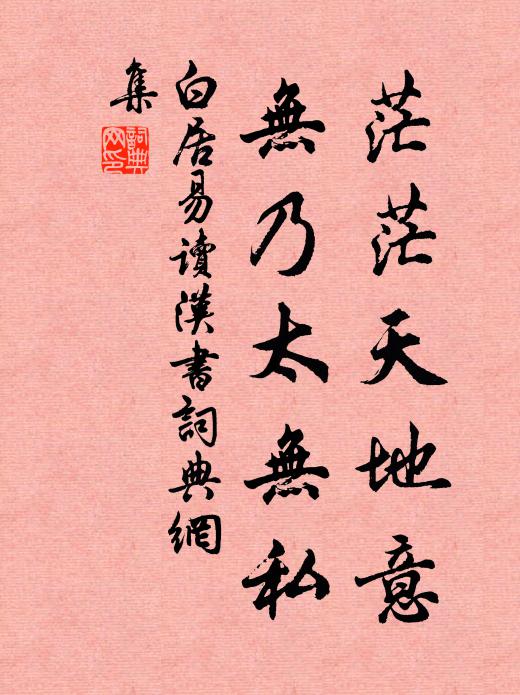 茫茫天地意
無乃太無私
白居易讀漢書詞典網
集
詞典
网印